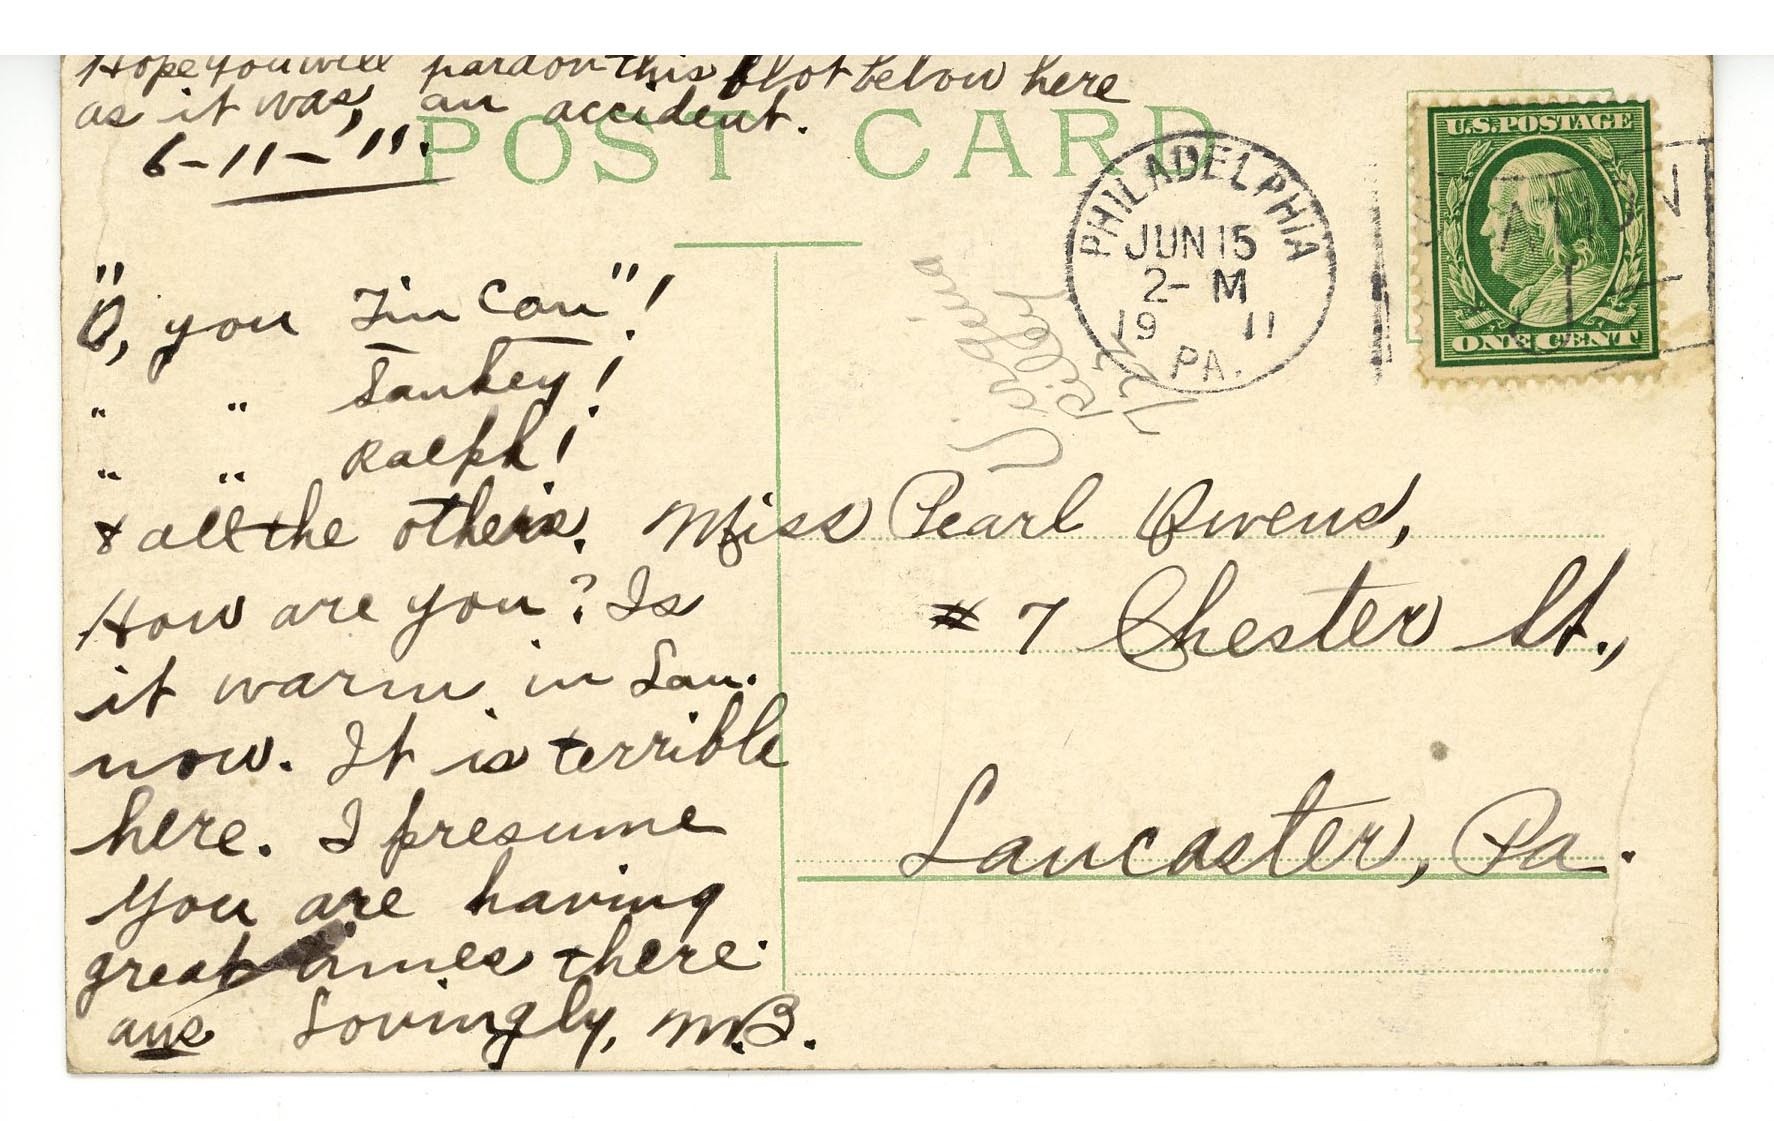 Hope you will pardon this blot below here
as it was, an accident.
6-11-'11.
POST CARD
U.S. POSTAGE
ONE CENT
PHILADELPHIA
JUN 15
2- M
19 11
PA.
Virginia
Riley
"O, you Tin Can"!
" " Sankey!
" " Ralph!
& all the others.
How are you? Is
it warm in Lan.
now. It is terrible
here. I presume
you are having
great times there.
ans Lovingly, M.B.
Miss Pearl Owens,
# 7 Chester St.,
Lancaster, Pa.